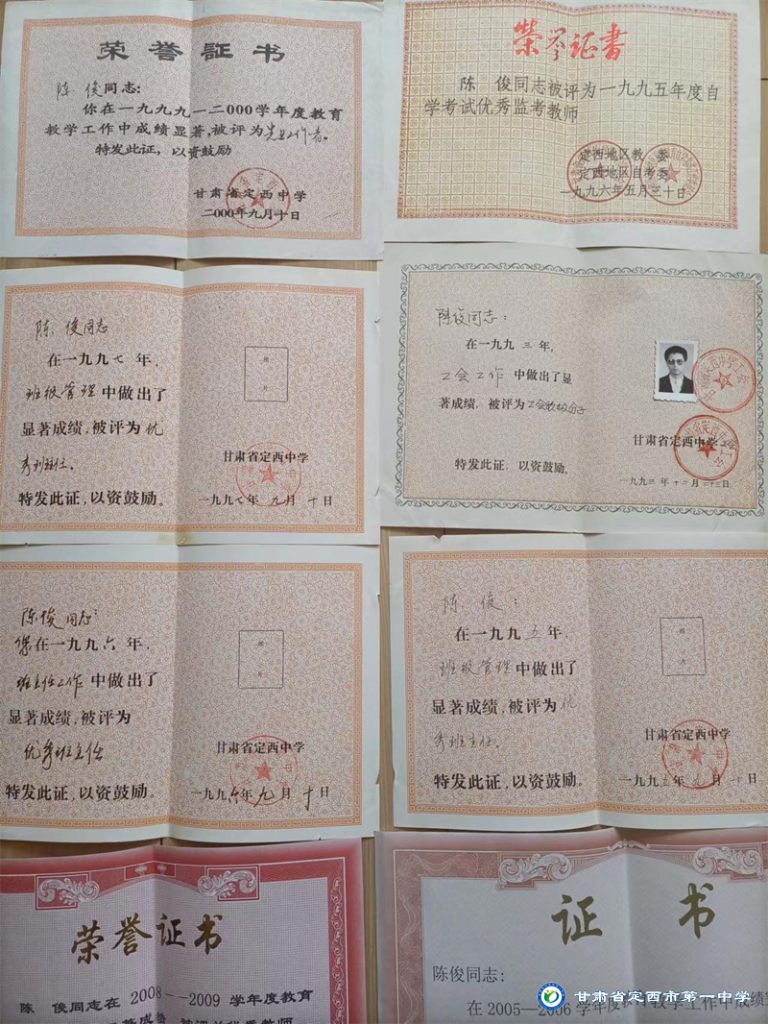 荣誉证书
陈 俊同志:
你在一九九九一二000学年度教育
教学工作中成绩显著,被评为先进工作者。
特发此证,以资鼓励
甘肃省定西中学
二000年九月十日
荣誉证書
陈 俊同志被评为一九九五年度自
学考试优秀监考教师
定西地区教 委
定西地区自考委
一九九六年五月三十日
陈 俊同志
在一九九七年,
班级管理中做出了
显著成绩,被评为优
秀班主任。
特发此证,以资鼓励。
照
片
甘肃省定西中学
一九九七年九月十日
陈俊同志:
在一九九三年,
工会工作中做出了显
著成绩,被评为工会积极分子
特发此证,以资鼓励。
甘肃省定西中学
一九九三年十二月二十三日
陈俊同志:
在一九九六年,
班主任工作中做出了
显著成绩,被评为
优秀班主任
特发此证,以资鼓励。
照
片
甘肃省定西中学
一九九六年九月十日
陈 俊:
在一九九五年,
班级管理中做出了
显著成绩,被评为优
秀班主任。
特发此证,以资鼓励。
照
片
甘肃省定西中学
一九九五年九月十日
荣誉证书
陈 俊同志在 2008--2009 学年度教育
证 书
陈俊同志:
在 2005—2006 学年度教育教学工作中成绩
甘肃省定西市第一中学